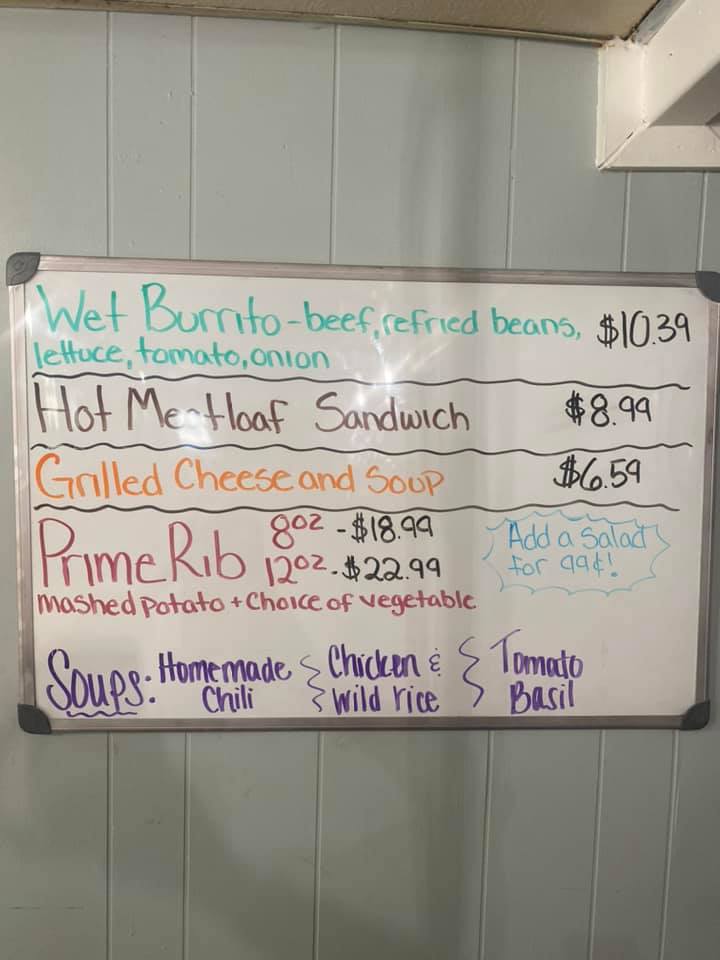 Wet Burrito - beef, refried beans, $10.39
lettuce, tomato, onion
Hot Meatloaf Sandwich $8.99
Grilled Cheese and Soup $6.59
Prime Rib 8oz - $18.99
12oz - $22.99
mashed potato + Choice of vegetable
Add a Salad
for 99¢!
Soups: Homemade Chili
Chicken & Wild rice
Tomato Basil